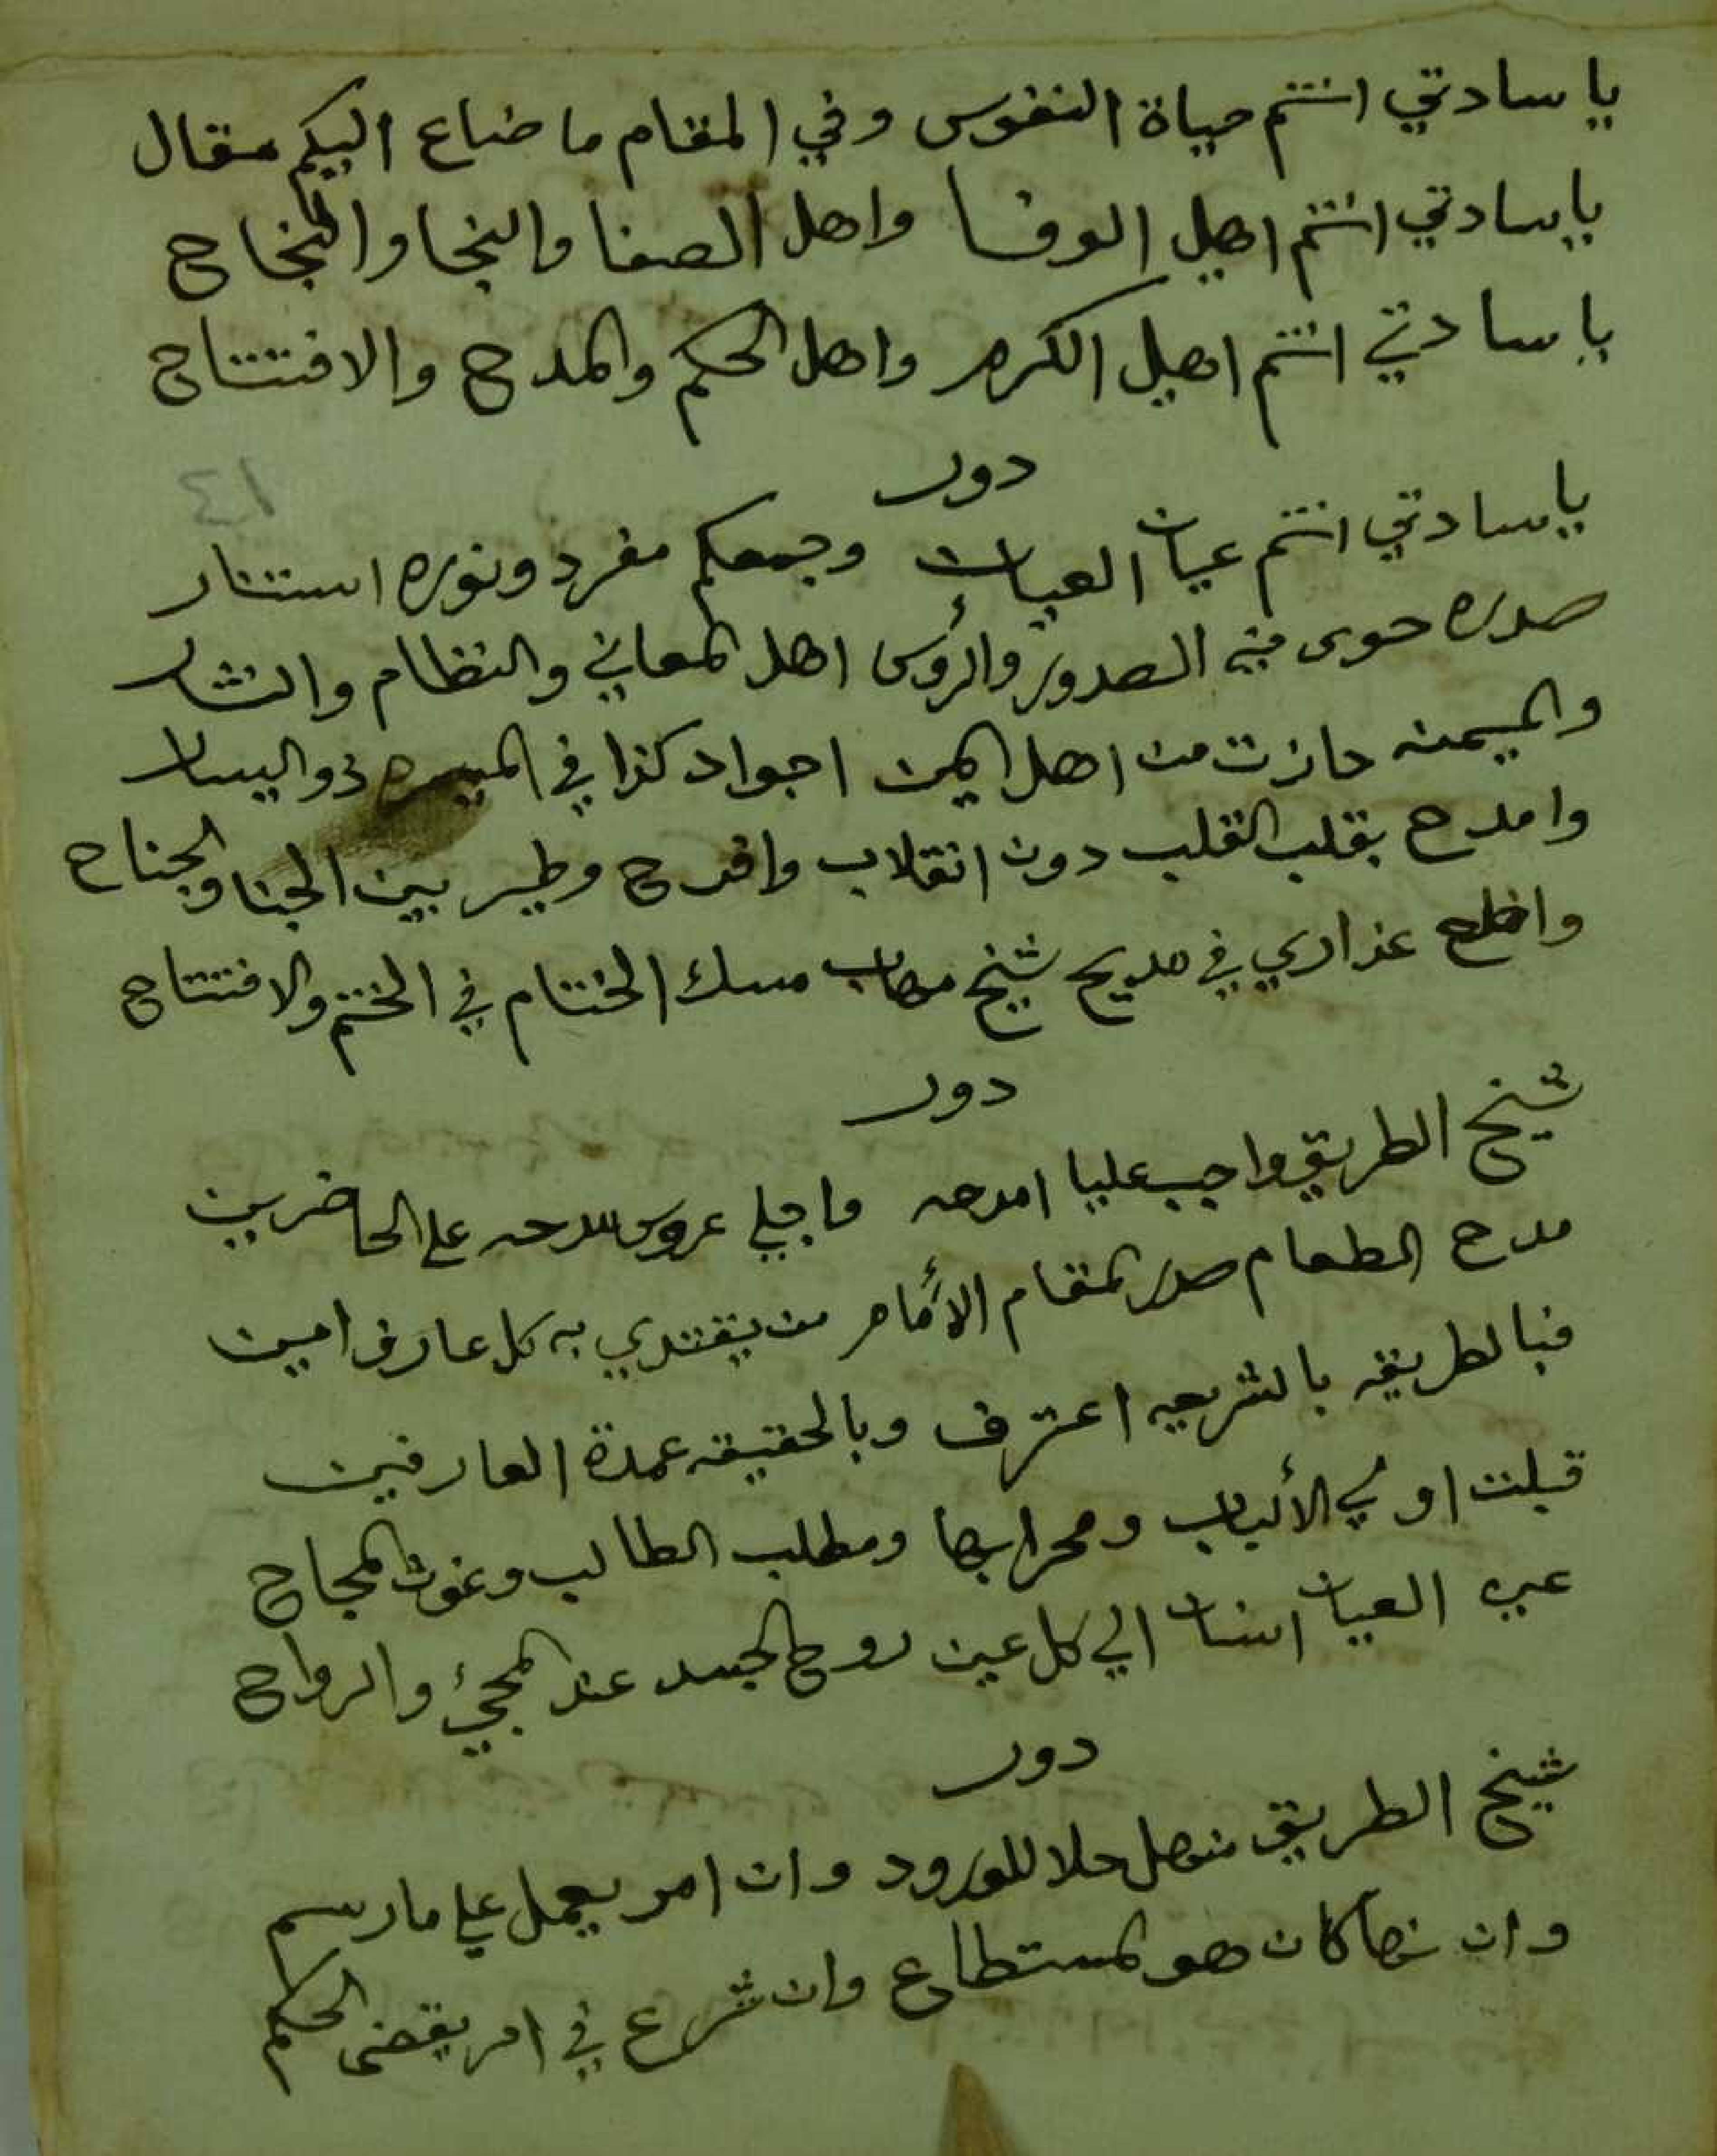 يا سادتي انتم حياة النفوس وفي المقام ما ضاع اليكم مقال
يا سادتي انتم اهيل الوفا واهل الصفا والنجا والنجاح
يا سادتي انتم اهيل الكرم واهل الحكم والمدح والافتتاح
دور
٤١
يا سادتي انتم عيان العيان وجمعكم مفرد ونوره استنار
صدره حوى فيه الصدور والرؤس اهل المعاني والنظام والنثار
والميمنه حازت من اهل اليمن اجواد كذا في الميسره ذو اليسار
وامدح بقلب القلب دون انقلاب وافرح وطير بين الجنا والجناح
واخلع عذاري في مديح شيخ مهاب مسك الختام في الختم والافتتاح
دور
شيخ الطريق واجب عليا امدحه واجلي عروس مدحه على الحاضرين
مدح الطعام صدر المقام الأمام من يقتدي به كل عارف امين
فبالطريقه بالشريعه اعترف وبالحقيقه عمدة العارفين
قبلت اولي الألباب ومحرابها ومطلب الطالب وغوث المجاح
عين العيان انسان الي كل عين روح الجسد عند المجئ والرواح
دور
شيخ الطريق منهل حلا للورود وان امر يعمل علي ما رسم
وان نها كان هو المستطاع وان شرع في امر يقضى الحكم